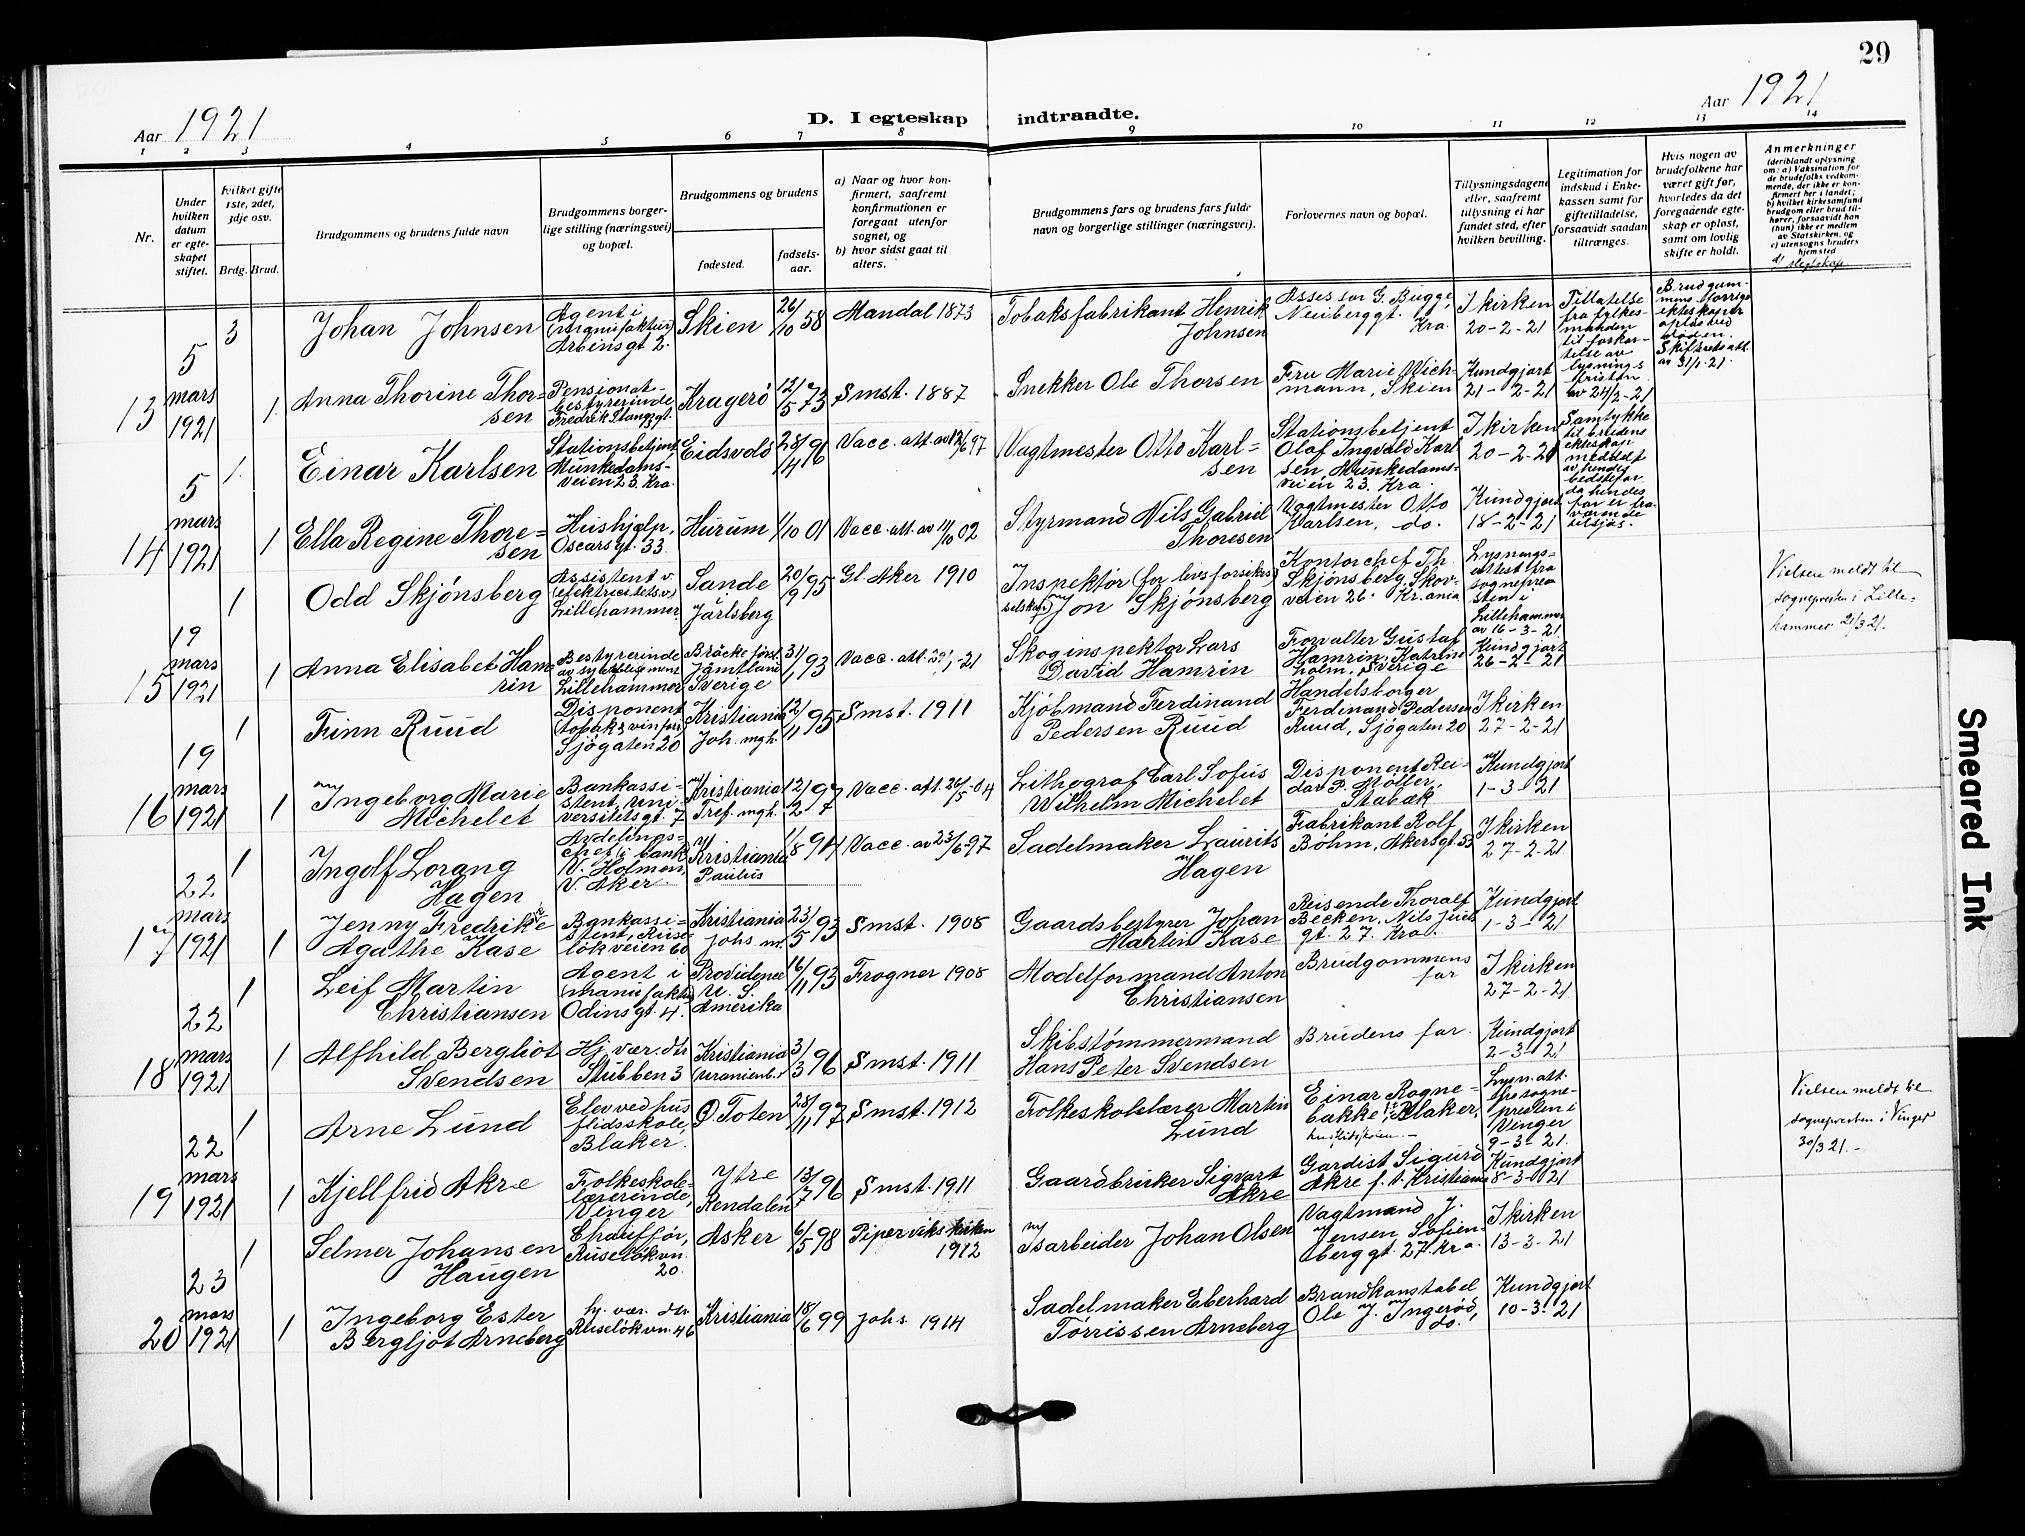 29
Aar 1921
D. I egteskap indtraadte.
Aar 1921
1 2 3 4 5 6 7 8 9 10 11 12 13 14
Nr.
Under hvilken datum er egteskapet stiftet.
Hvilket gifte 1ste, 2det, 3dje osv.
Brdg. Brud.
Brudgommens og brudens fulde navn
Brudgommens borgerlige stilling (næringsvei) og bopæl.
Brudgommens og brudens
fødested.
fødselsaar.
a) Naar og hvor konfirmert, saafremt konfirmationen er foregaat utenfor sognet, og
b) hvor sidst gaat til alters.
Brudgommens fars og brudens fars fulde navn og borgerlige stillinger (næringsvei).
Forlovernes navn og bopæl.
Tillysningsdagene eller, saafremt tillysning ei har fundet sted, efter hvilken bevilling.
Legitimation for indskud i Enkekassen samt for giftetilladelse, forsaavidt saadan tiltrænges.
Hvis nogen av brudefolkene har været gift før, hvorledes da det foregaaende egteskap er opløst, samt om lovlig skifte er holdt.
Anmerkninger
(deriblandt oplysning om: a) Vaksination for de brudefolks vedkommende, der ikke er konfirmert her i landet; b) hvilket kirkesamfund brudgom eller brud tilhører, forsaavidt han (hun) ikke er medlem av Statskirken, og c) utensogns bruders hjemsted
d) slegtskap
13 5 mars 1921
3 Johan Johnsen
Agent i (manufaktur) Arbinsgt 2.
Skien 26/10 58
Mandal 1873
Tobaksfabrikant Henrik Johnsen
Assessor G. Bugge, Neubergsgt. Kra.
I kirken 20-2-21
Tillatelse fra fylkesmanden til forkortelse av lysningsfristen av 24/2-21
Brudgommens forrige ekteskaper opløst ved døden. Skifteretsatt. av 31/1-21.
1 Anna Thorine Thorsen
Pensionatbestyrerinde Fredrik Stangsgt.
Kragerø 12/5 73
Smst. 1887
Snekker Ole Thorsen
Fru Marie Wichmann, Skien
Kundgjort 21-2-21
14 5 mars 1921
1 Einar Karlsen
Stationsbetjent Munkedamsveien 23. Kra.
Eidsvold 28/4 96
Vacc. att. av 12/6 97
Vagtmester Otto Karlsen
Stationsbetjent Olaf Ingvald Karlsen Munkedamsveien 23. Kra.
I kirken 20-2-21
Samtykke til brudens ekteskap meddelt av hendes bedstefar da hendes far er fraværende tilsjøs.
1 Ella Regine Thoresen
Hushjælp, Oscarsgt. 33.
Hurum 1/10 01
Vacc. att. av 14/10 02
Styrmand Nils Gabriel Thoresen
Vagtmester Otto Karlsen, do.
Kundgjort 18-2-21
15 19 mars 1921
1 Odd Skjønsberg
Assistent v. (elektricitetsv.) Lillehammer
Sande i Jarlsberg 20/9 95
Gl. Aker 1910
Inspektør (for livsforsikringsselskap) Jon Skjønsberg
Kontorchef Th. Skjønsberg, Skovveien 26. Kr.ania
Lysningsattest fra sognepresten i Lillehammer av 16-3-21
Vielsen meldt til sognepresten i Lillehammer 21/3 21.
1 Anna Elisabet Hamrin
Bestyrerinde Lillehammer
Bräcke førs. Jämtland Sverige 31/1 93
Vacc. att. 29/1, 21
Skoginspektør Lars David Hamrin
Forvalter Gustaf Hamrin, Katrineholm, Sverige
Kundgjort 26-2-21
16 19 mars 1921
1 Finn Ruud
Disponent (tobak & vinforr.) Sjøgaten 20
Kristiania Joh. mgh. 12/11 95
Smst. 1911
Kjøbmand Ferdinand Pedersen Ruud
Handelsborger Ferdinand Pedersen Ruud, Sjøgaten 20
I kirken 27-2-21
1 Ingeborg Marie Michelet
Bankassistent, Universitetsgt. 7
Kristiania Tref. mgh. 12/2 97
Vacc. att. 26/5-04
Lithograf Carl Sofus Wilhelm Michelet
Disponent Reidar P. Møller, Stabæk
Kundgjort 1-3-21
17 22 mars 1921
1 Ingolf Lorang Hagen
Avdelingschef i bank V. Holmen, V. Aker.
Kristiania Paulus 1/8 94
Vacc. av 23/6-97
Sadelmaker Laurits Hagen
Fabrikant Rolf Bøhm, Akersgt. 53
I kirken 27-2-21
1 Jenny Fredrikke Agathe Kase
Bankassistent, Ruseløkveien 60
Kristiania Johs. m. 23/5 93
Smst. 1908
Gaardsbestyrer Johan Martin Kase
Reisende Thoralf Becken, Nils Juelsgt. 27. Kra.
Kundgjort 1-3-21
18 22 mars 1921
1 Leif Martin Christiansen
Agent i (manufaktur) Odinsgt. 4.
Providence U. S. Amerika 16/11 93
Frogner 1908
Modelformand Anton Christiansen
Brudgommens far
I kirken 27-2-21
1 Alfhild Bergliot Svendsen
Hj. vær. dtr Stubben 3
Kristiania (Uranienb.) 3/3 96
Smst. 1911
Skibstømmermand Hans Peter Svendsen
Brudens far.
Kundgjort 2-3-21
19 22 mars 1921
1 Arne Lund
Elev ved husflidsskole, Blaker.
Ø. Toten 28/11 97
Smst. 1912
Folkeskolelærer Martin Lund
Einar Rognebakke, Blaker,
Lysn. att. fra sognepresten i Vinger 9-3-21.
Vielsen meldt til sognepresten i Vinger 30/3 21.-
1 Kjellfrid Akre
Folkeskolelærerinde, Vinger
Ytre Rendalen 13/7 96
Smst. 1911
Gaardbruker Sigvart Akre
Gardist Sigurd Akre f. t. Kristiania
Kundgjort 8-3-21
20 23 mars 1921
1 Selmer Johansen Haugen
Chauffør, Ruseløkvn. 20.
Asker 6/5 98
Piperviks kirken 1912
Isarbeider Johan Olsen
Vagtmand J. Jensen Sofienberggt. 27. Kra.
I kirken 13-3-21
1 Ingeborg Ester Bergljot Arneberg
hj. vær. dtr Ruseløkvn. 46
Kristiania 18/6 99
Johs. 1914
Sadelmaker Eberhard Tørrissen Arneberg
Brandkonstabel Ole J. Ingerød, do.
Kundgjort 10-3-21
Smeared Ink